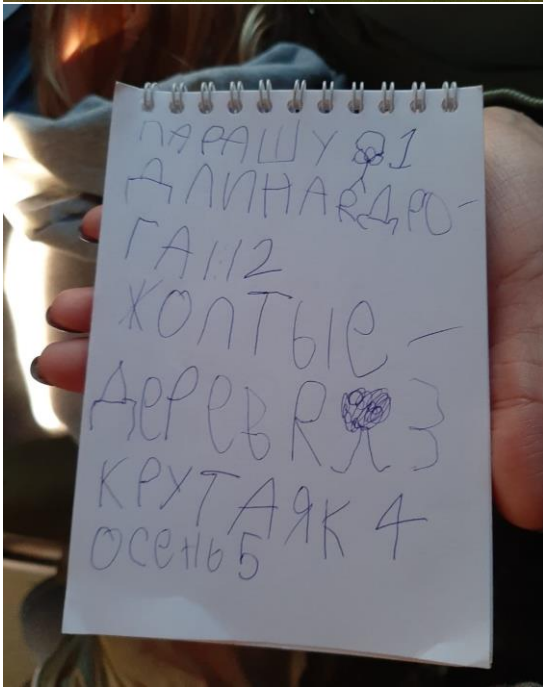 ПАРАШУ 1
ДЛИНАЯДРО-
ГА!!2
ЖОЛТЫЕ-
ДЕРЕВЯ 3
КРУТАЯК 4
ОСЕНЬ 5